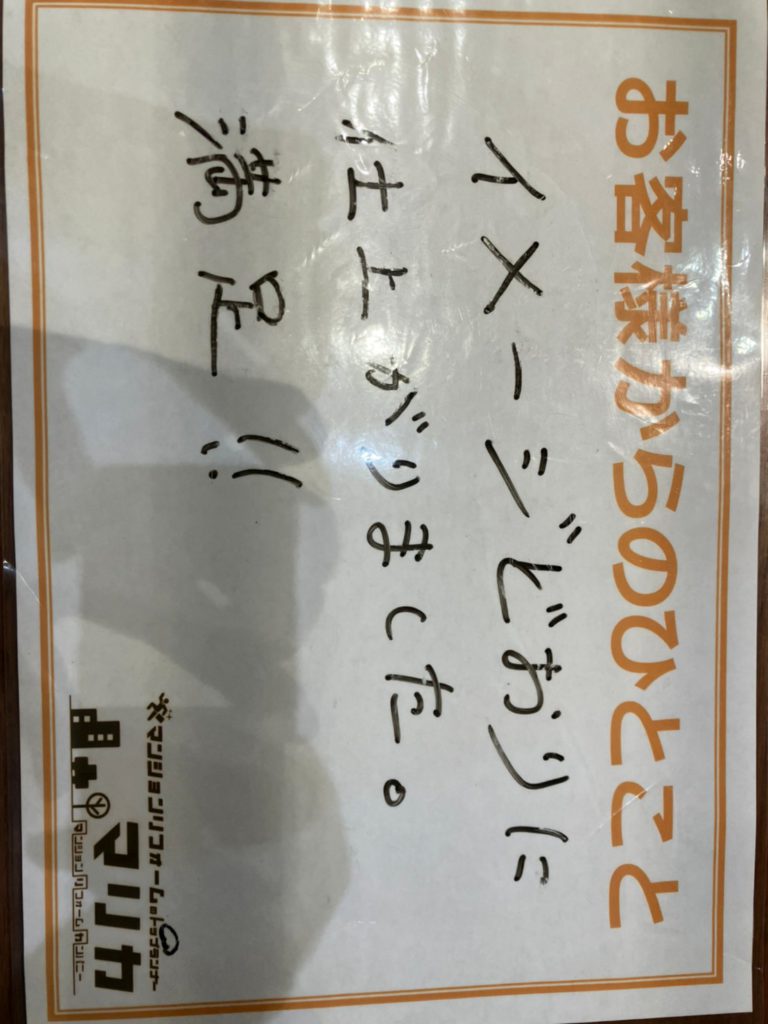 お客様からのひとこと
イメージどおりに
仕上がりました。
満足!!
マンションリフォームのトップランナー
マリカ
マンションリフォームカンパニー